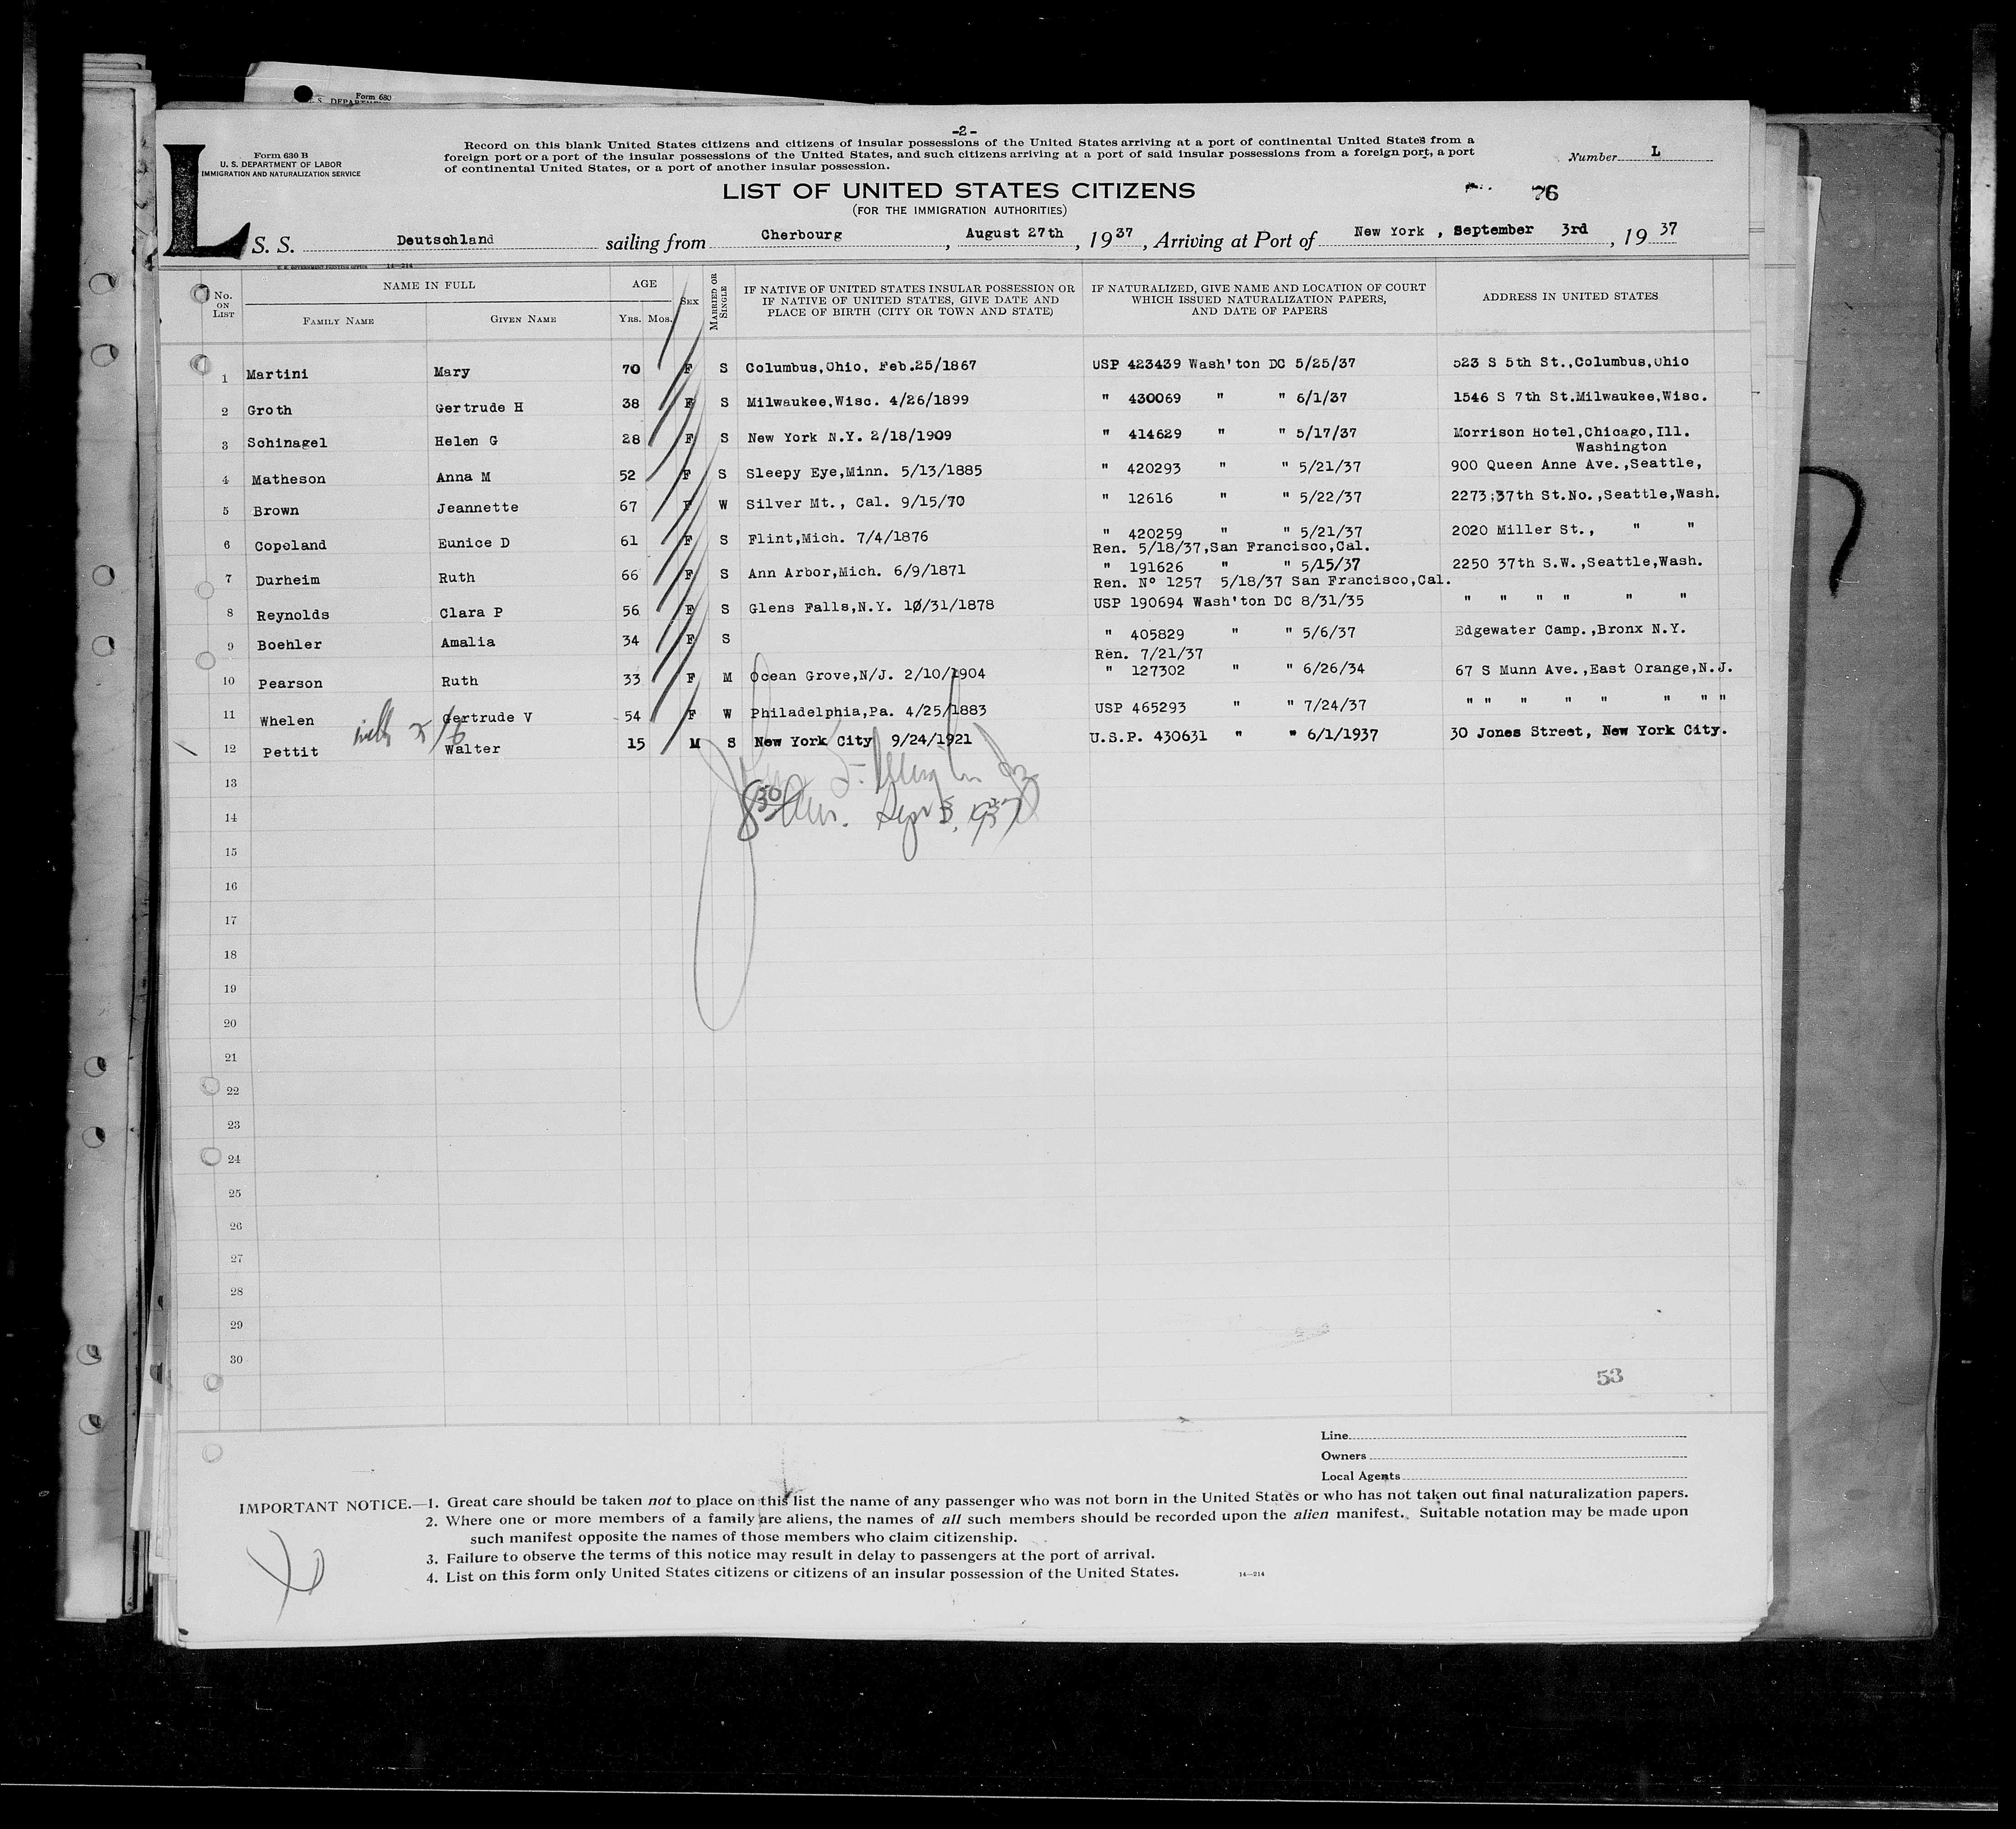 Form 680
-2-
Form 630 B
U. S. DEPARTMENT OF LABOR
IMMIGRATION AND NATURALIZATION SERVICE
Record on this blank United States citizens and citizens of insular possessions of the United States arriving at a port of continental United States from a
foreign port or a port of the insular possessions of the United States, and such citizens arriving at a port of said insular possessions from a foreign port, a port
of continental United States, or a port of another insular possession.
Number L
L
LIST OF UNITED STATES CITIZENS
76
(FOR THE IMMIGRATION AUTHORITIES)
S. S. Deutschland sailing from Cherbourg, August 27th, 1937, Arriving at Port of New York, September 3rd, 1937
U. S. GOVERNMENT PRINTING OFFICE 14—214
No. ON LIST NAME IN FULL FAMILY NAME GIVEN NAME AGE YRS. MOS. SEX MARRIED OR SINGLE IF NATIVE OF UNITED STATES INSULAR POSSESSION OR IF NATIVE OF UNITED STATES, GIVE DATE AND PLACE OF BIRTH (CITY OR TOWN AND STATE) IF NATURALIZED, GIVE NAME AND LOCATION OF COURT WHICH ISSUED NATURALIZATION PAPERS, AND DATE OF PAPERS ADDRESS IN UNITED STATES
1 Martini Mary 70 F S Columbus,Ohio, Feb.25/1867 USP 423439 Wash'ton DC 5/25/37 523 S 5th St.,Columbus,Ohio
2 Groth Gertrude H 38 F S Milwaukee,Wisc. 4/26/1899 " 430069 " " 6/1/37 1546 S 7th St.Milwaukee,Wisc.
3 Schinagel Helen G 28 F S New York N.Y. 2/18/1909 " 414629 " " 5/17/37 Morrison Hotel,Chicago,Ill.
Washington
4 Matheson Anna M 52 F S Sleepy Eye,Minn. 5/13/1885 " 420293 " " 5/21/37 900 Queen Anne Ave.,Seattle,
5 Brown Jeannette 67 F W Silver Mt., Cal. 9/15/70 " 12616 " " 5/22/37 2273;37th St.No.,Seattle,Wash.
6 Copeland Eunice D 61 F S Flint,Mich. 7/4/1876 " 420259 " " 5/21/37 2020 Miller St., " "
Ren. 5/18/37,San Francisco,Cal.
7 Durheim Ruth 66 F S Ann Arbor,Mich. 6/9/1871 " 191626 " " 5/15/37 2250 37th S.W.,Seattle,Wash.
Ren. Nº 1257 5/18/37 San Francisco,Cal.
8 Reynolds Clara P 56 F S Glens Falls,N.Y. 10/31/1878 USP 190694 Wash'ton DC 8/31/35 " " " " " "
9 Boehler Amalia 34 F S " 405829 " " 5/6/37 Edgewater Camp.,Bronx N.Y.
Ren. 7/21/37
10 Pearson Ruth 33 F M Ocean Grove,N/J. 2/10/1904 " 127302 " " 6/26/34 67 S Munn Ave.,East Orange,N.J.
11 Whelen Gertrude V 54 F W Philadelphia,Pa. 4/25/1883 USP 465293 " " 7/24/37 " " " " " " " "
12 Pettit Walter 15 M S New York City 9/24/1921 U.S.P. 430631 " " 6/1/1937 30 Jones Street, New York City.
13
14
15
16
17
18
19
20
21
22
23
24
25
26
27
28
29
30
53
Line
Owners
Local Agents
IMPORTANT NOTICE.—1. Great care should be taken not to place on this list the name of any passenger who was not born in the United States or who has not taken out final naturalization papers.
2. Where one or more members of a family are aliens, the names of all such members should be recorded upon the alien manifest. Suitable notation may be made upon
such manifest opposite the names of those members who claim citizenship.
3. Failure to observe the terms of this notice may result in delay to passengers at the port of arrival.
4. List on this form only United States citizens or citizens of an insular possession of the United States.
14—214